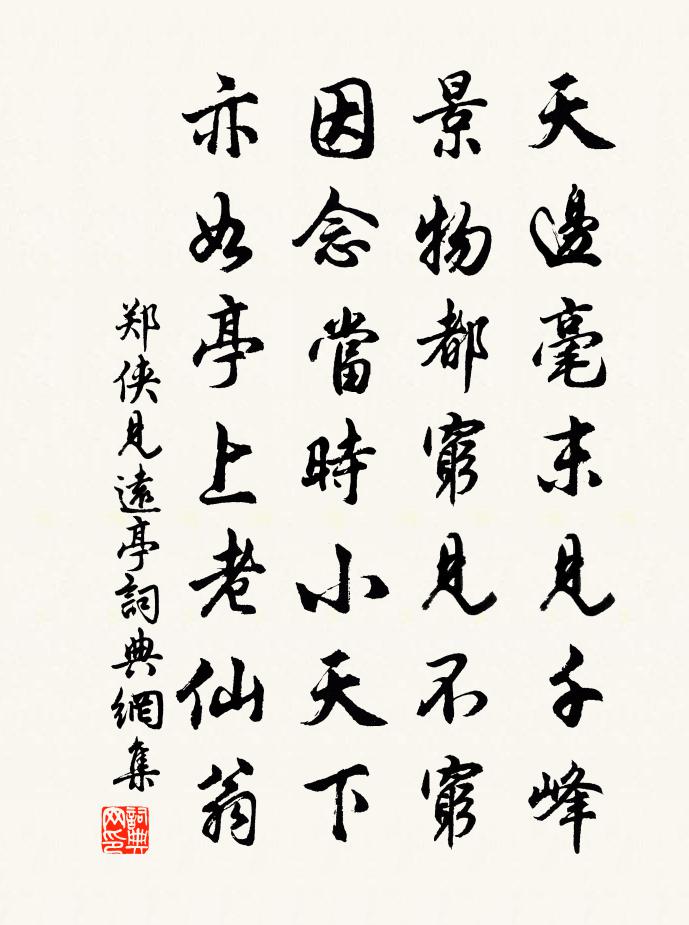 天邊毫末見千峰
景物都窮見不窮
因念當時小天下
亦如亭上老仙翁
郑侠見遠亭詞典網集
詞典网印